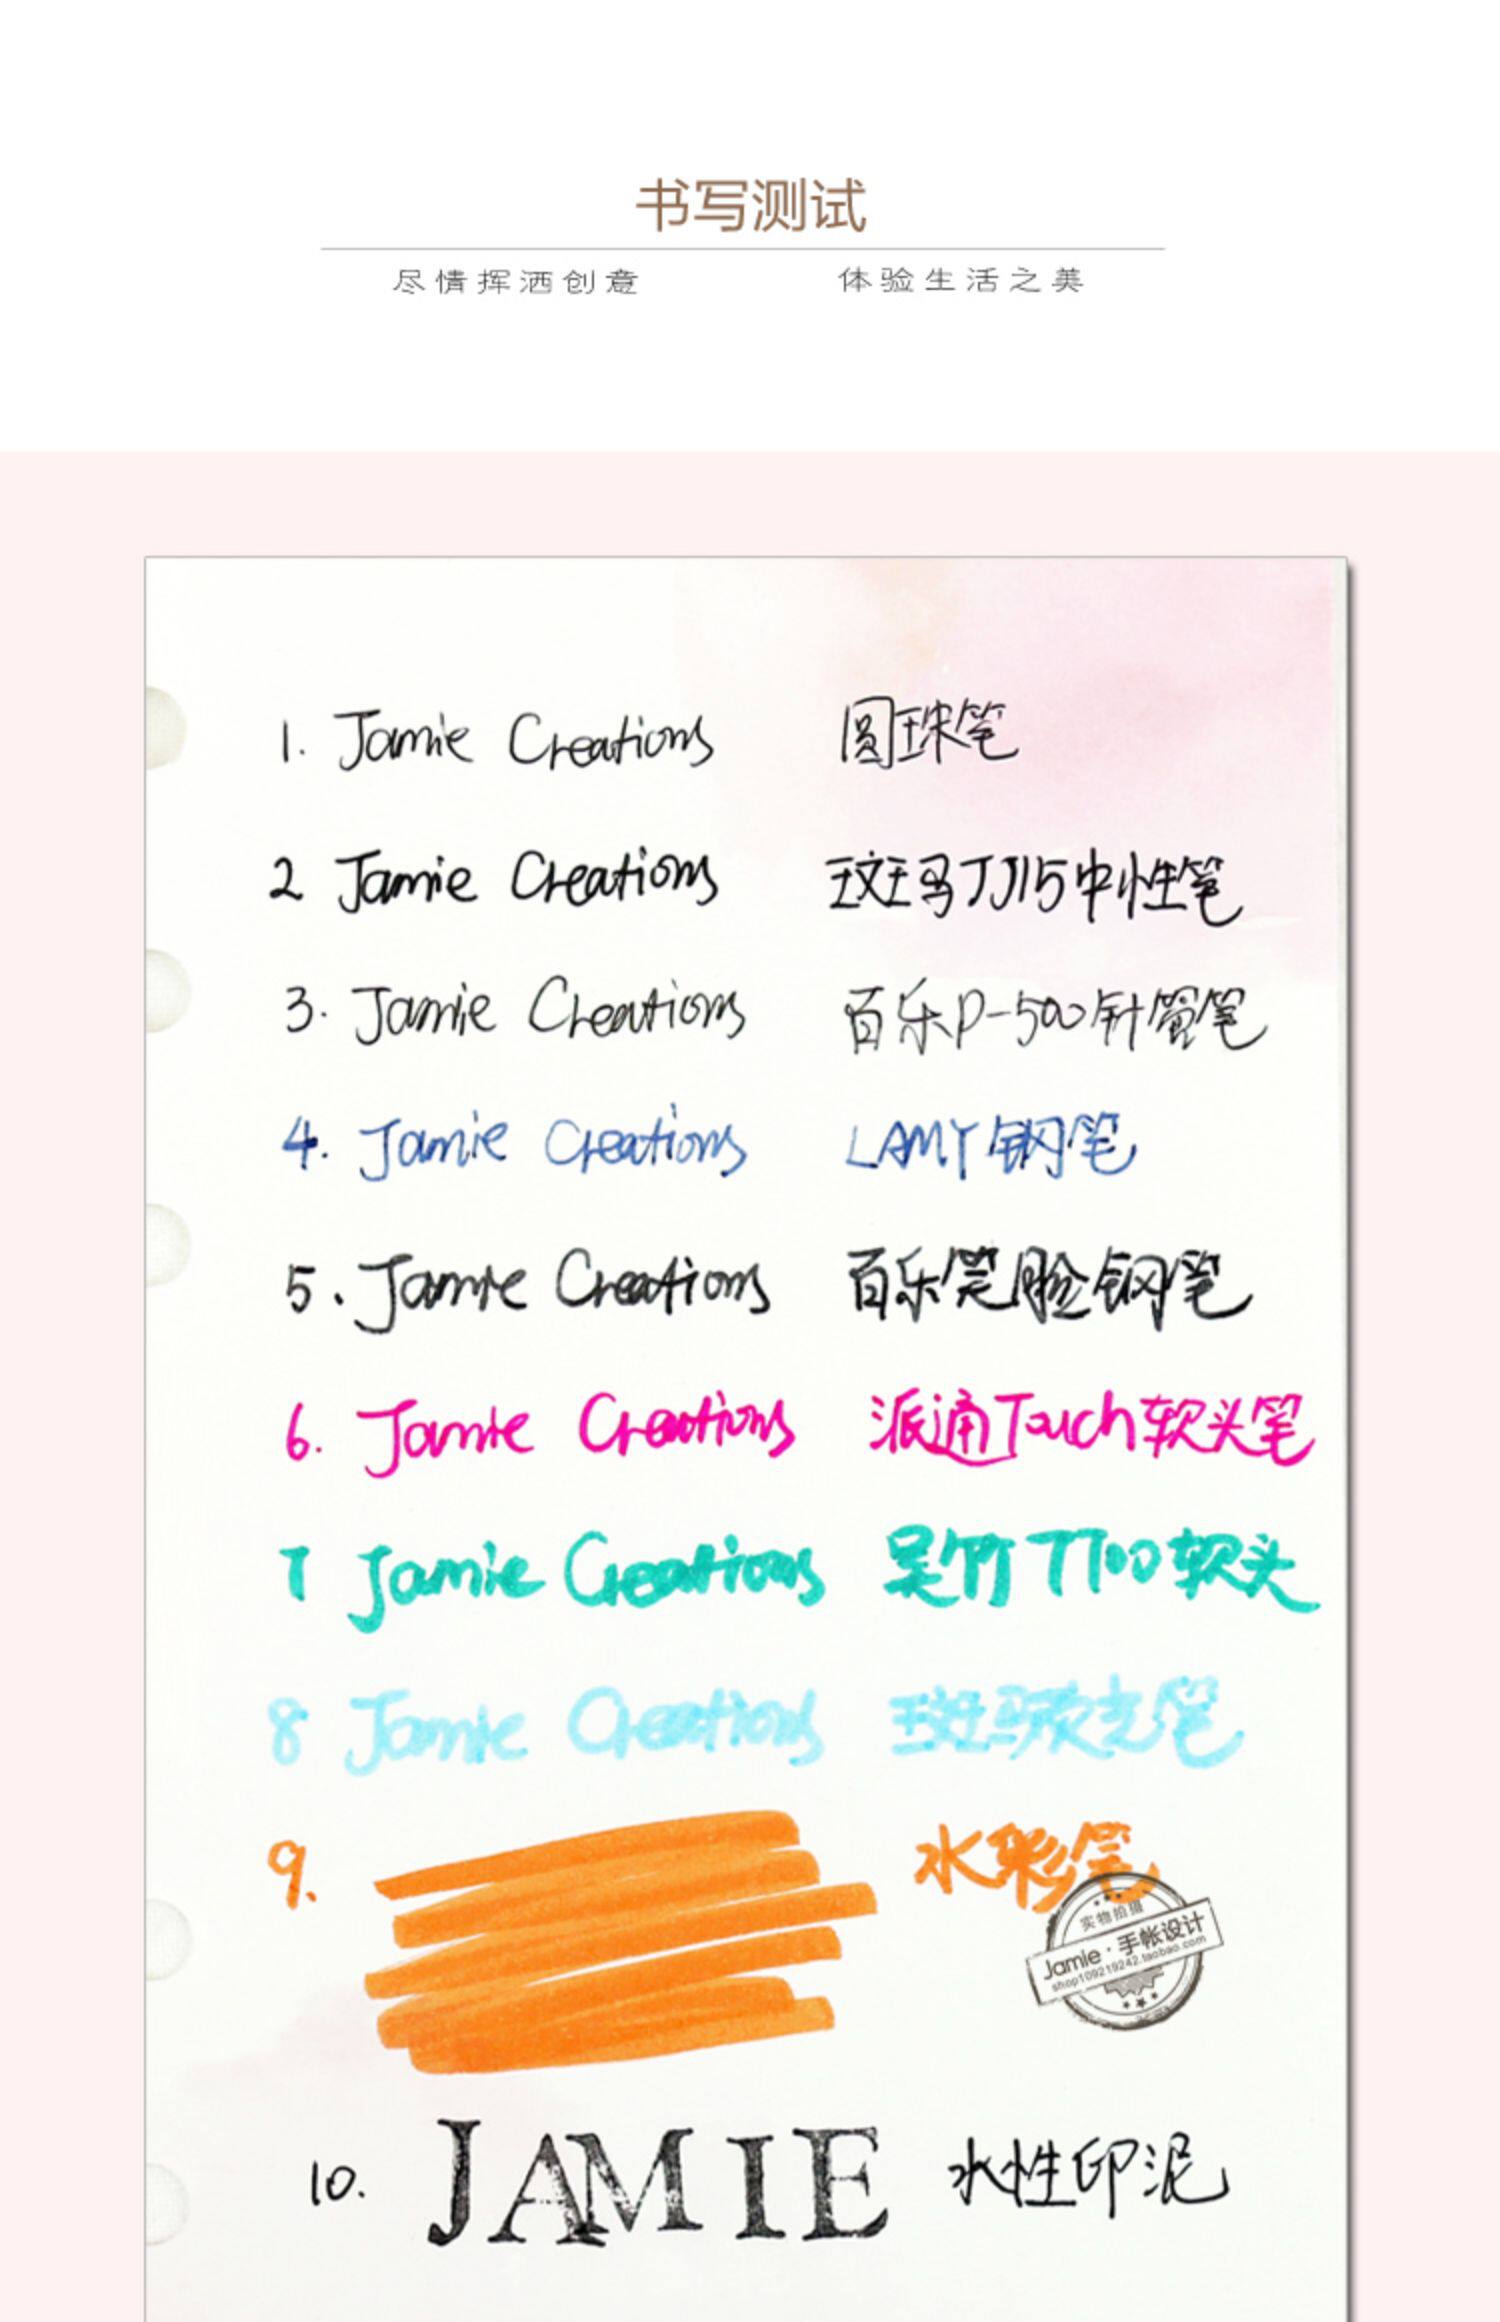 书写测试
尽情挥洒创意 体验生活之美
1. Jamie Creations 圆珠笔
2 Jamie Creations 斑马JJ15中性笔
3. Jamie Creations 百乐P-500针管笔
4. Jamie Creations LAMY钢笔
5. Jamie Creations 百乐笑脸钢笔
6. Jamie Creations 派通Touch软头笔
7 Jamie Creations 吴竹7700软头
8 Jamie Creations 斑马荧光笔
9. 水彩笔
实物拍摄
Jamie·手帐设计
shop109219242.taobao.com
10. JAMIE 水性印泥